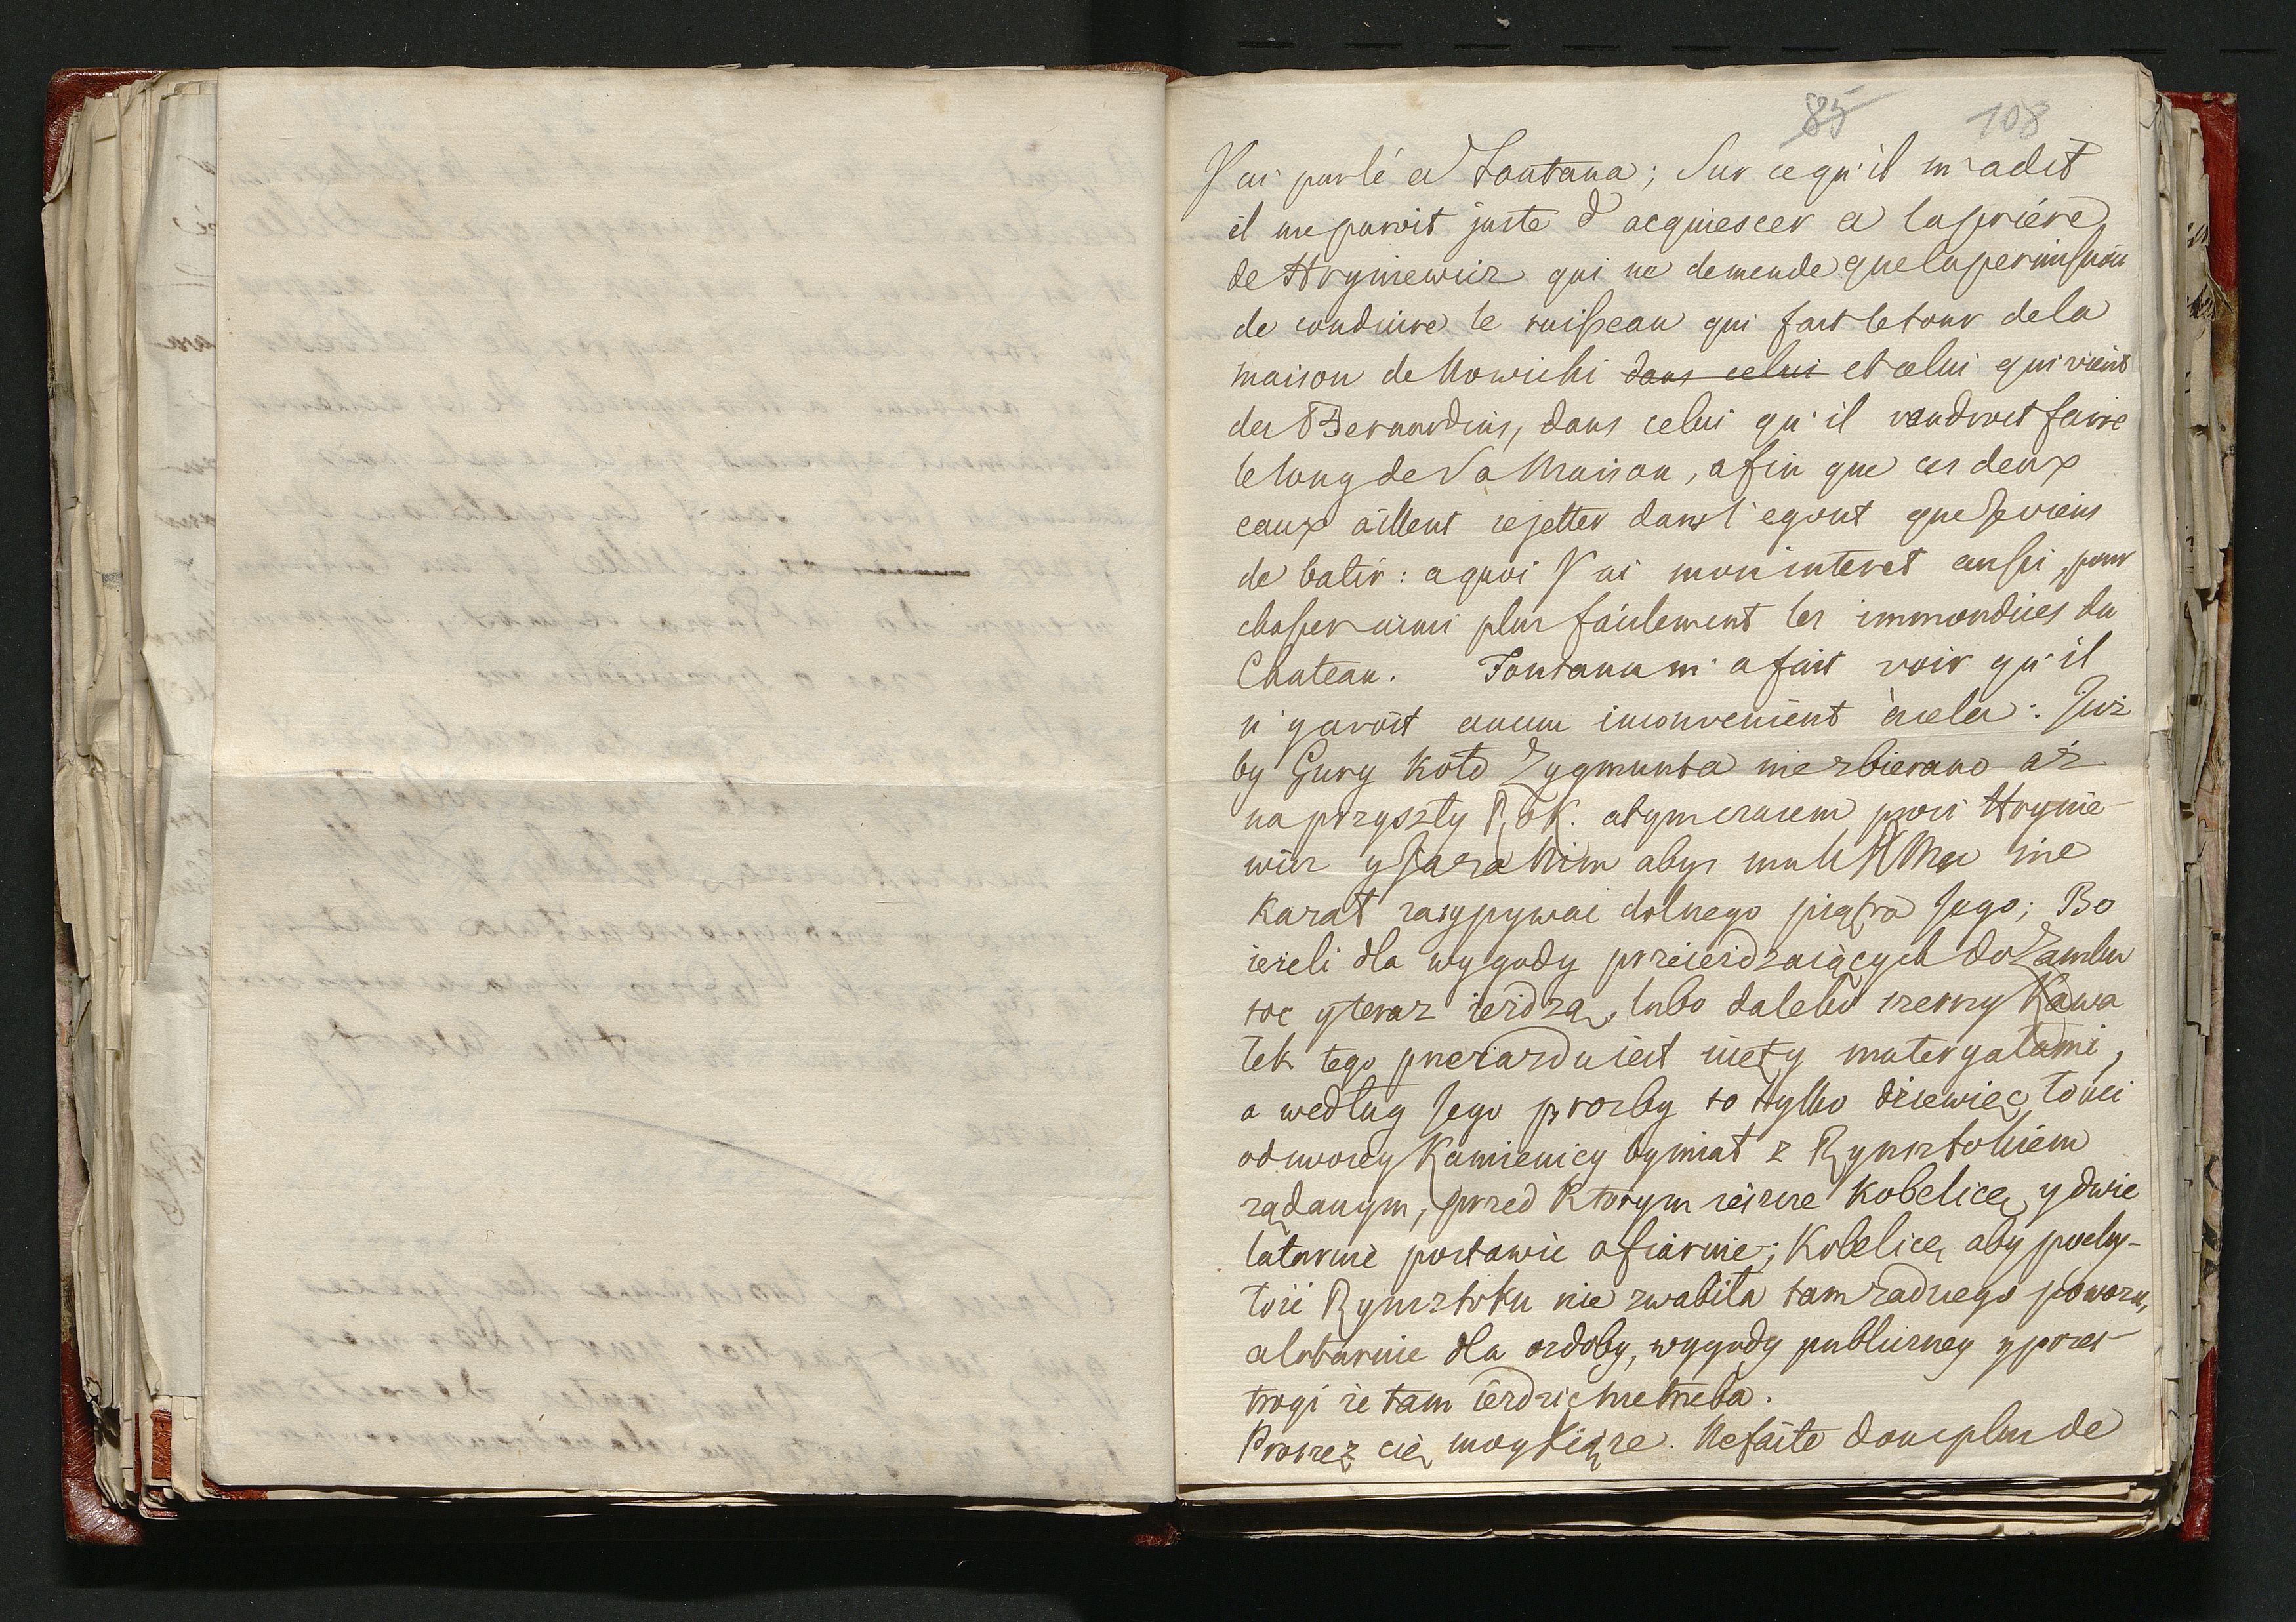 85 108
J'ai parlé a Fontana; Sur ce qu'il m'a dit
il me paroit juste d'acquiescer a la priére
de Hryniewicz qui ne demende que la permission
de conduire le ruisseau qui fait le tour de la
maison de Nowicki dans celui et celui qui vient
des Bernardins, dans celui qu'il voudroit faire
le long de Sa Maison, afin que ces deux
eaux aillent se jetter dans l'egout que je viens
de batir: a quoi J'ai mon interet aussi, pour
chasser ainsi plus facilement les immondices du
Chateau. Fontana m'a fait voir qu'il
n'y avoit aucun inconvenient à cela: Juz
by Gury koło Zygmunta nie zbierano aż
na przyszły Rok. a tym czasem prosi Hrynie-
wicz y Ja za Nim abys mu WMć nie
kazał zasypywac dolnego piątra Jego; Bo
iezeli dla wygody przeieidzaiących do Zamku
toc y teraz ieidzą, lubo daleko szerszy Kawa
łek tego przeiazdu iest zięty materyałami,
a według Jego prozby to tylko dziewięc łokci
od nowey Kamienicy by miał z Rynsztokiem
ządanym, przed Ktorym ieszcze kobelicę y dwie
latarnie postawic ofiaruie; Kobelicę aby pochy-
łosć Rynsztoku nie zwabiła tam zadnego powozu,
a latarnie dla ozdoby, wygody publiczney y przes-
trogi ze tam iezdzic nie trzeba.
Proszę cię moy Xiąże. Ne faite donc plus de